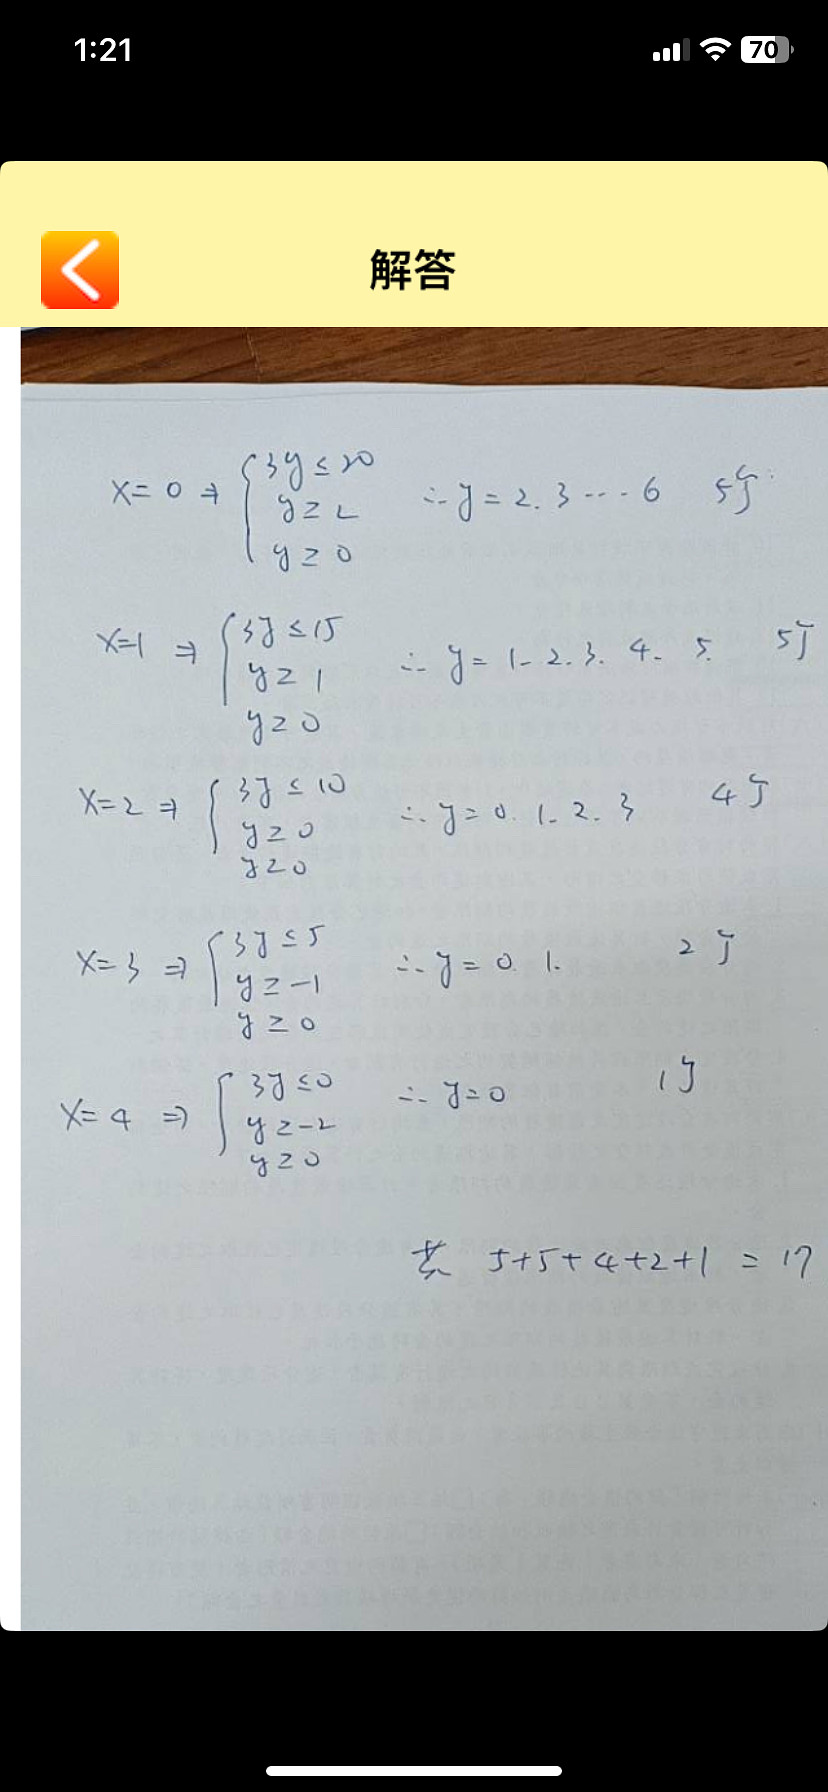 1:21
70
解答
x=0 ⇒ { 3y ≤ 20
y ≥ 2
y ≥ 0
∴ y = 2. 3 ... 6 5个
x=1 ⇒ { 3y ≤ 15
y ≥ 1
y ≥ 0
∴ y = 1. 2. 3. 4. 5. 5个
x=2 ⇒ { 3y ≤ 10
y ≥ 0
y ≥ 0
∴ y = 0. 1. 2. 3 4个
x=3 ⇒ { 3y ≤ 5
y ≥ -1
y ≥ 0
∴ y = 0. 1. 2个
x=4 ⇒ { 3y ≤ 0
y ≥ -2
y ≥ 0
∴ y = 0 1个
共 5+5+4+2+1 = 17